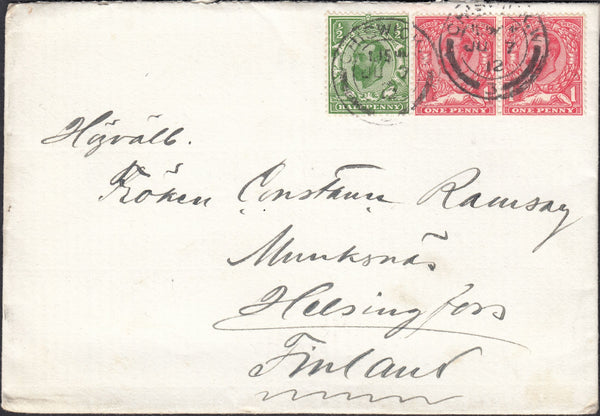 ½ ½
HALFPENNY
1
ONE PENNY ONE PENNY
JU 7
12
Högvälb.
Fröken Constance Ramsay
Munksnäs
Helsingfors
Finland